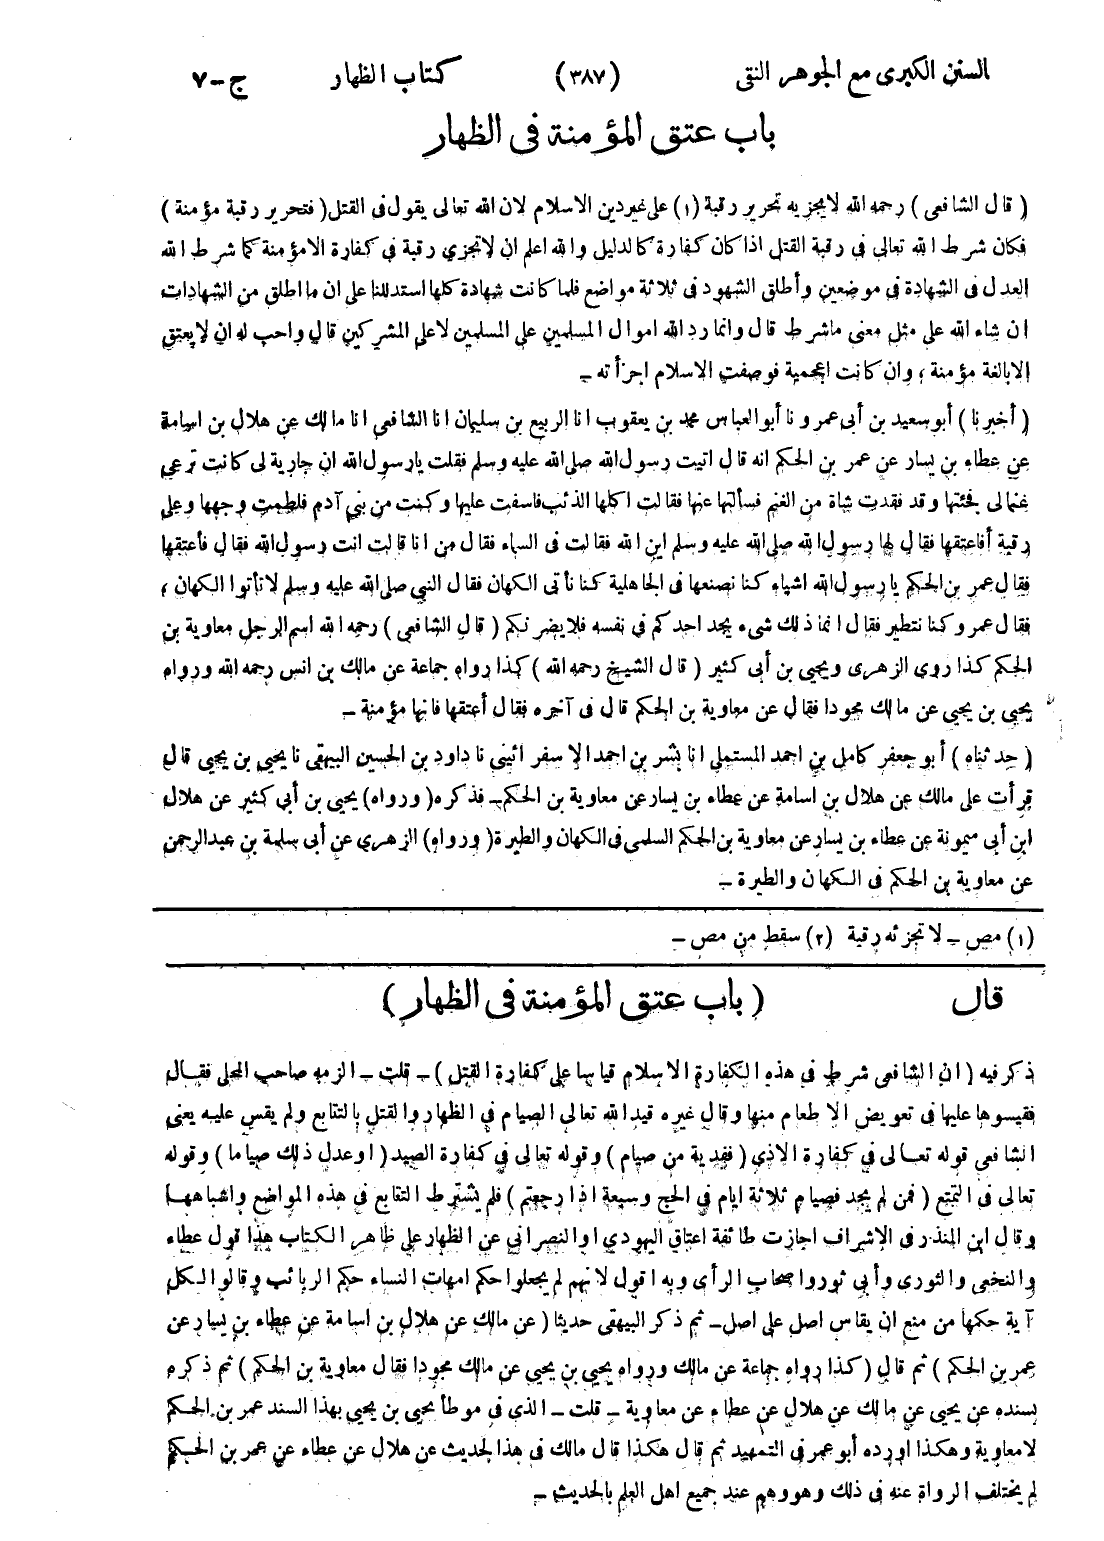 السنن الكبرى مع الجوهر النقى (٣٨٧) كتاب الظهار ج-٧
باب عتق المؤمنة فى الظهار
( قال الشافعى ) رحمه الله لايجزيه تحرير رقبة (١) على غيردين الاسلام لان الله تعالى يقول فى القتل( فتحرير رقبة مؤمنة )
فكان شرط الله تعالى فى رقبة القتل اذا كان كفارة كالدليل والله اعلم ان لاتجزي رقبة فى كفارة الامؤمنة كما شرط الله
العدل فى الشهادة فى موضعين وأطلق الشهود فى ثلاثة مواضع فلما كانت شهادة كلها استدللنا على ان ما اطلق من الشهادات
ان شاء الله على مثل معنى ماشرط قال وانما رد الله اموال المسلمين على المسلمين لاعلى المشركين قال واحب له ان لايعتق
الابالغة مؤمنة ، وان كانت اعجمية فوصفت الاسلام اجزأته ـ
( أخبرنا ) أبو سعيد بن أبى عمرو نا أبو العباس محمد بن يعقوب انا الربيع بن سليمان انا الشافعى انا مالك عن هلال بن اسامة
عن عطاء بن يسار عن عمر بن الحكم انه قال اتيت رسول الله صلى الله عليه وسلم فقلت يارسول الله ان جارية لى كانت ترعي
غنمالى فجئتها وقد فقدت شاة من الغنم فسألتها عنها فقالت اكلها الذئب فاسفت عليها وكنت من بني آدم فلطمت وجهها وعلى
رقبة أفاعتقها فقال لها رسول الله صلى الله عليه وسلم اين الله فقالت فى السماء فقال من انا قالت انت رسول الله فقال فأعتقها
فقال عمر بن الحكم يارسول الله اشياء كنا نصنعها فى الجاهلية كنا نأتى الكهان فقال النبي صلى الله عليه وسلم لاتأتوا الكهان ،
فقال عمر وكنا نتطير فقال انما ذلك شىء يجد احدكم فى نفسه فلايضرنكم ( قال الشافعى ) رحمه الله اسم الرجل معاوية بن
الحكم كذا روى الزهرى ويحيى بن أبى كثير ( قال الشيخ رحمه الله ) كذا رواه جماعة عن مالك بن انس رحمه الله ورواه
يحيى بن يحيى عن مالك مجودا فقال عن معاوية بن الحكم قال فى آخره فقال أعتقها فانها مؤمنة ـ
( حدثناه ) أبو جعفر كامل بن احمد المستملى انا بشر بن احمد الاسفرائينى نا داود بن الحسين البيهقى نا يحيى بن يحيى قال
قرأت على مالك عن هلال بن اسامة عن عطاء بن يسار عن معاوية بن الحكم ـ فذكره ( ورواه) يحيى بن أبي كثير عن هلال
ابن أبى ميمونة عن عطاء بن يسار عن معاوية بن الحكم السلمى فى الكهان والطيرة ( ورواه) الزهرى عن أبى سلمة بن عبدالرحمن
عن معاوية بن الحكم فى الكهان والطيرة ـ
(١) مص ـ لاتجزئه رقبة (٢) سقط من مص ـ
قال ( باب عتق المؤمنة فى الظهار )
ذكر فيه ( ان الشافعى شرط فى هذه الكفارة الاسلام قياسا على كفارة القتل ) ـ قلت ـ الزمه صاحب المحلى فقال
فقيسوها عليها فى تعويض الاطعام منها وقال غيره قيد الله تعالى الصيام فى الظهار والقتل بالتتابع ولم يقس عليه يعنى
الشافعى قوله تعالى فى كفارة الاذى ( ففدية من صيام ) وقوله تعالى فى كفارة الصيد ( اوعدل ذلك صياما ) وقوله
تعالى فى التمتع ( فمن لم يجد فصيام ثلاثة ايام فى الحج وسبعة اذا رجعتم ) فلم يشترط التتابع فى هذه المواضع واشباهها
وقال ابن المنذر فى الاشراف اجازت طائفة اعتاق اليهودي اوالنصرانى عن الظهار على ظاهر الكتاب هذا قول عطاء
والنخعى والثورى وأبى ثور واصحاب الرأى وبه اقول لانهم لم يجعلوا حكم امهات النساء حكم الربائب وقالوا لكل
آية حكمها من منع ان يقاس اصل على اصل ـ ثم ذكر البيهقى حديثا ( عن مالك عن هلال بن اسامة عن عطاء بن يسار عن
عمر بن الحكم ) ثم قال ( كذا رواه جماعة عن مالك ورواه يحيى بن يحيى عن مالك مجودا فقال معاوية بن الحكم ) ثم ذكره
بسنده عن يحيى عن مالك عن هلال عن عطاء عن معاوية ـ قلت ـ الذى فى موطأ يحيى بن يحيى بهذا السند عمر بن الحكم
لامعاوية وهكذا اورده أبو عمر فى التمهيد ثم قال هكذا قال مالك فى هذا الحديث عن هلال عن عطاء عن عمر بن الحكم
لم يختلف الرواة عنه فى ذلك وهو وهم عند جميع اهل العلم بالحديث ـ